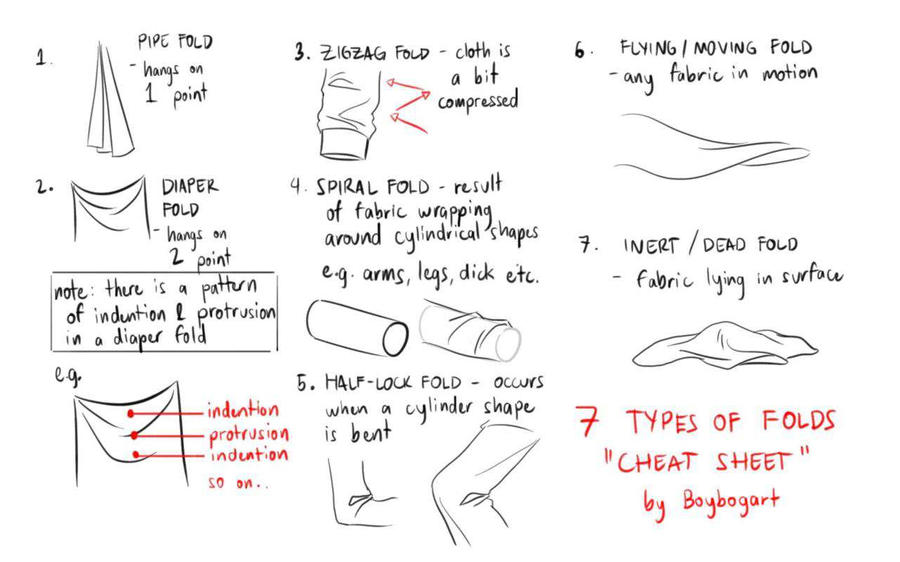 1.
PIPE FOLD
- hangs on
1 point
2.
DIAPER
FOLD
- hangs on
2 point
note: there is a pattern
of indention & protrusion
in a diaper fold
e.g.
indention
protrusion
indention
so on..
3. ZIGZAG FOLD - cloth is
a bit
compressed
4. SPIRAL FOLD - result
of fabric wrapping
around cylindrical shapes
e.g. arms, legs, dick etc.
5. HALF-LOCK FOLD - occurs
when a cylinder shape
is bent
6. FLYING/MOVING FOLD
- any fabric in motion
7. INERT/DEAD FOLD
- fabric lying in surface
7 TYPES OF FOLDS
"CHEAT SHEET"
by Boybogart